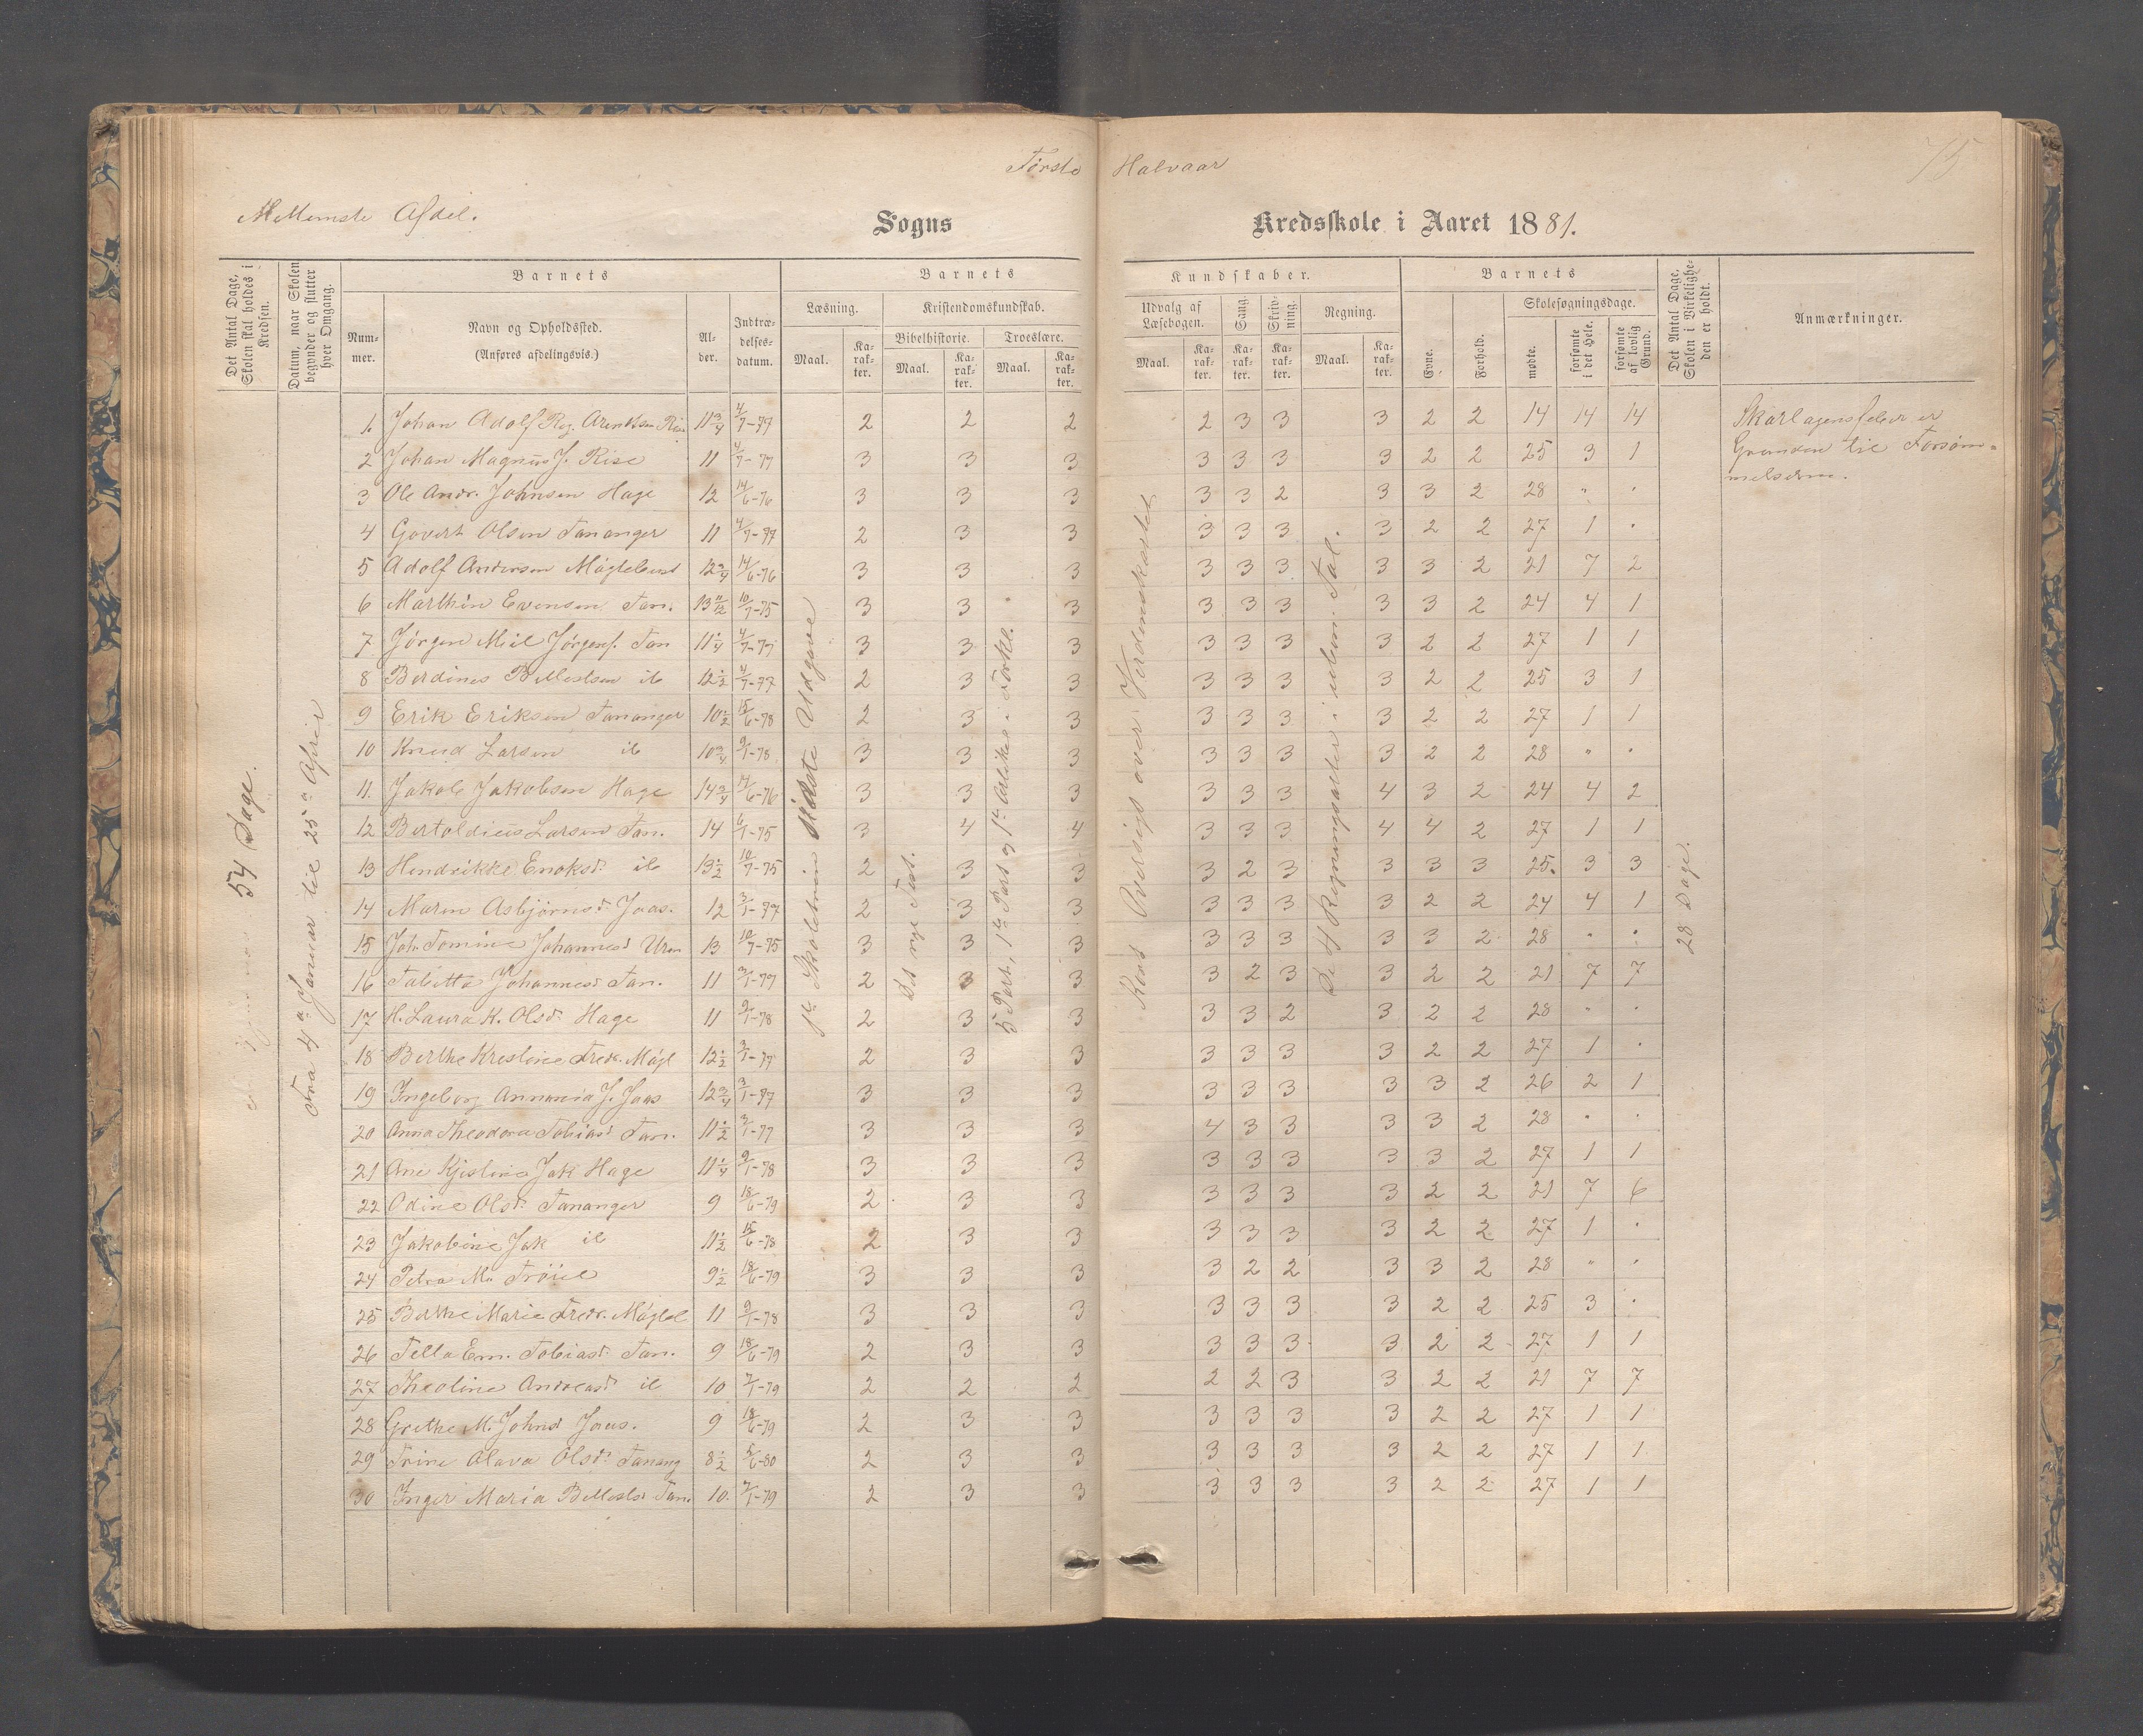 Første Halvaar
75
Mellemste Afdel.
Sogns Kredsskole i Aaret 1881.
Det Antal Dage, Skolen skal holdes i Kredsen.
Datum, naar Skolen begynder og slutter hver Omgang.
Barnets
Nummer.
Navn og Opholdssted.
(Anføres afdelingsvis.)
Alder.
Indtrædelsesdatum.
Barnets Kundskaber.
Læsning.
Kristendomskundskab.
Bibelhistorie.
Troeslære.
Udvalg af Læsebogen.
Sang.
Skrivning.
Regning.
Maal.
Karakter.
Maal.
Karakter.
Maal.
Karakter.
Maal.
Karakter.
Karakter.
Karakter.
Maal.
Karakter.
Barnets
Evne.
Forhold.
Skolesøgningsdage.
mødte.
forsømte i det Hele.
forsømte af lovlig Grund.
Det Antal Dage, Skolen i Virkeligheden er holdt.
Anmærkninger.
54 Dage.
Fra 4de Januar til 25de April
Det nye Test.
5 Part, 1ste Part og 1ste Artikel i Forkl.
Kort Oversigt over Verdenskartet
De 4 Regningsarter i ubon. Tal.
28 Dage.
Skarlagensfeber er
Grunden til Forsøm-
melserne.
1. Johan Adolf Reg. Arentsen Rise 11 3/4 4/7-77 2 2 2 2 3 3 3 2 2 14 14 14
2 Johan Magnus J. Rise 11 4/7-77 3 3 3 3 3 3 3 2 2 25 3 1
3 Ole Andr. Johnsen Hage 12 14/6-76 3 3 3 3 3 2 3 3 2 28 " "
4 Govert Olsen Tananger 11 4/7-77 2 3 3 3 3 3 3 2 2 27 1 "
5 Adolf Andersen Møgleb 12 3/4 14/6-76 3 3 3 3 3 3 3 3 2 21 7 2
6 Marthin Evensen Tan. 13 11/12 10/7-75 3 3 3 3 3 3 3 3 2 24 4 1
7 Jørgen Jørgens. Tan 11 1/4 4/7-77 3 3 3 3 3 3 3 2 2 27 1 1
8 Berdines Bellestsen ib 12 1/2 4/7-77 2 3 3 3 3 3 3 2 2 25 3 1
9 Erik Eriksen Tananger 10 1/2 15/6-78 2 3 3 3 3 3 3 2 2 27 1 1
10 Knud Larsen ib 10 3/4 9/1-78 3 3 3 3 3 3 3 2 2 28 " "
11. Jakob Jakobsen Hage 14 3/4 14/6-76 3 3 3 3 3 3 4 3 2 24 4 2
12 Bertoldius Larsen Tan. 14 6/1-75 3 4 4 3 3 3 4 4 2 27 1 1
13 Hendrikke Enoksd. ib 13 1/2 10/7-75 2 3 3 3 2 3 3 3 3 25. 3 3
14 Maren Asbjørnsd. Jaas. 12 3/1-77 2 3 3 3 3 3 3 2 2 24 4 1
15 Joh. Tomine Johannesd Uren 13 10/7-75 3 3 3 3 3 3 3 3 2 28 " "
16 Tabitta Johannesd Tan. 11 3/1-77 2 3 3 3 2 3 3 2 2 21 7 7
17 H. Laura K. Olsd. Hage 11 9/1-78 2 3 3 3 3 2 3 2 2 28 " "
18 Berthe Krestine Fredr. Møgl 12 1/2 3/1-77 2 3 3 3 3 3 3 2 2 27 1 "
19 Ingeborg Annania J. Jaas 12 3/4 3/1-77 3 3 3 3 3 3 3 3 2 26 2 1
20 Anna Theodora Tobiasd Tan. 11 1/2 3/1-77 3 3 3 4 3 3 3 3 2 28 " "
21 Ane Kjistine Jak Hage 11 1/4 9/1-78 3 3 3 3 3 3 3 3 2 27 1 1
22 Odine Olsd. Tananger 9 18/6-79 2 3 3 3 3 3 3 2 2 21 7 6
23 Jakobine Jak ib 11 1/2 15/6-78 2 3 3 3 3 3 3 2 2 27 1 "
24 Petra M. Trøiel 9 1/2 18/6-79 3 3 3 3 2 2 3 3 2 28 " "
25 Berthe Marie Fredr. Møgleb 11 9/1-78 3 3 3 3 3 3 3 2 2 25 3 "
26 Tella Em. Tobiasd. Tan. 9 18/6-79 2 3 3 3 3 3 3 2 2 27 1 1
27 Theoline Andreasd ib 10 7/1-79 2 2 2 2 2 3 3 2 2 21 7 7
28 Grethe M. Johnsd Jaas. 9 18/6-79 2 3 3 3 3 3 3 2 2 27 1 1
29 Trine Olava Olsd. Tanang 8 1/2 5/6-80 2 3 3 3 3 3 3 2 2 27 1 1
30 Inger Maria Bellestsd Tan. 10. 7/1-79 2 3 3 3 3 3 3 2 2 27 1 1